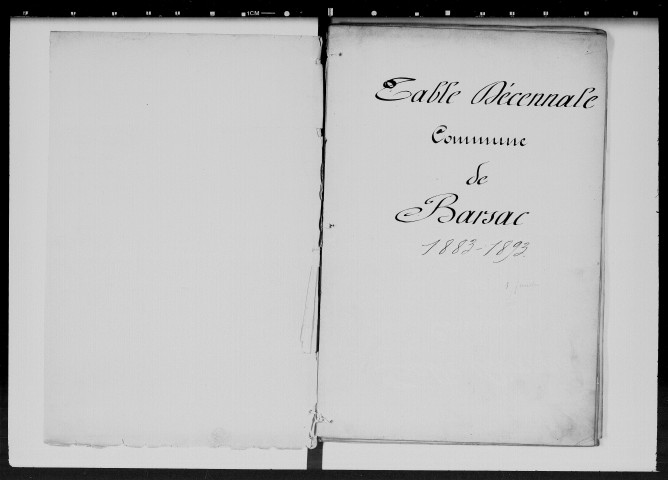 1CM
Table Décennale
Commune
de
Barsac
1883-1893.